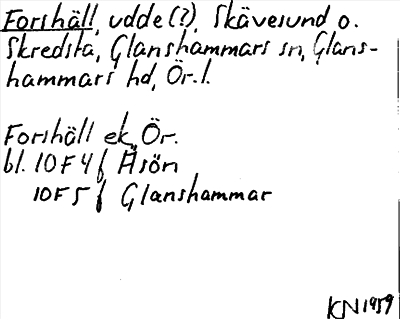 Forshäll, udde(?), Skävesund o.
Skredsta, Glanshammars sn, Glans-
hammars hd, Ör. l.
Forshäll ek, Ör.
bl. 10F4f Äsön
10F5f Glanshammar
KN 1959